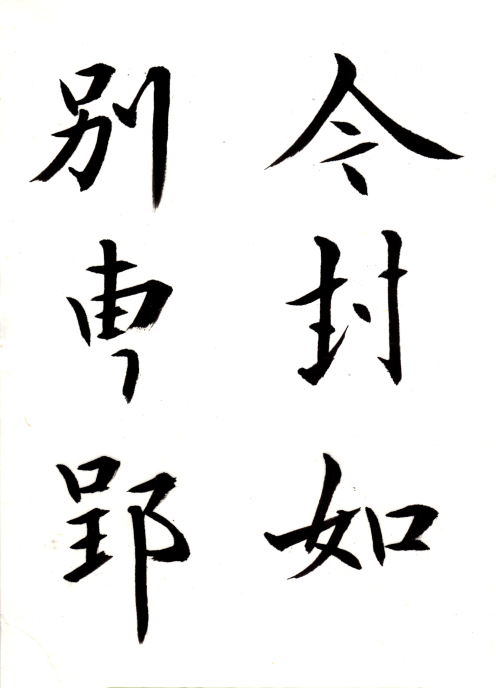 令封如
別甹郢